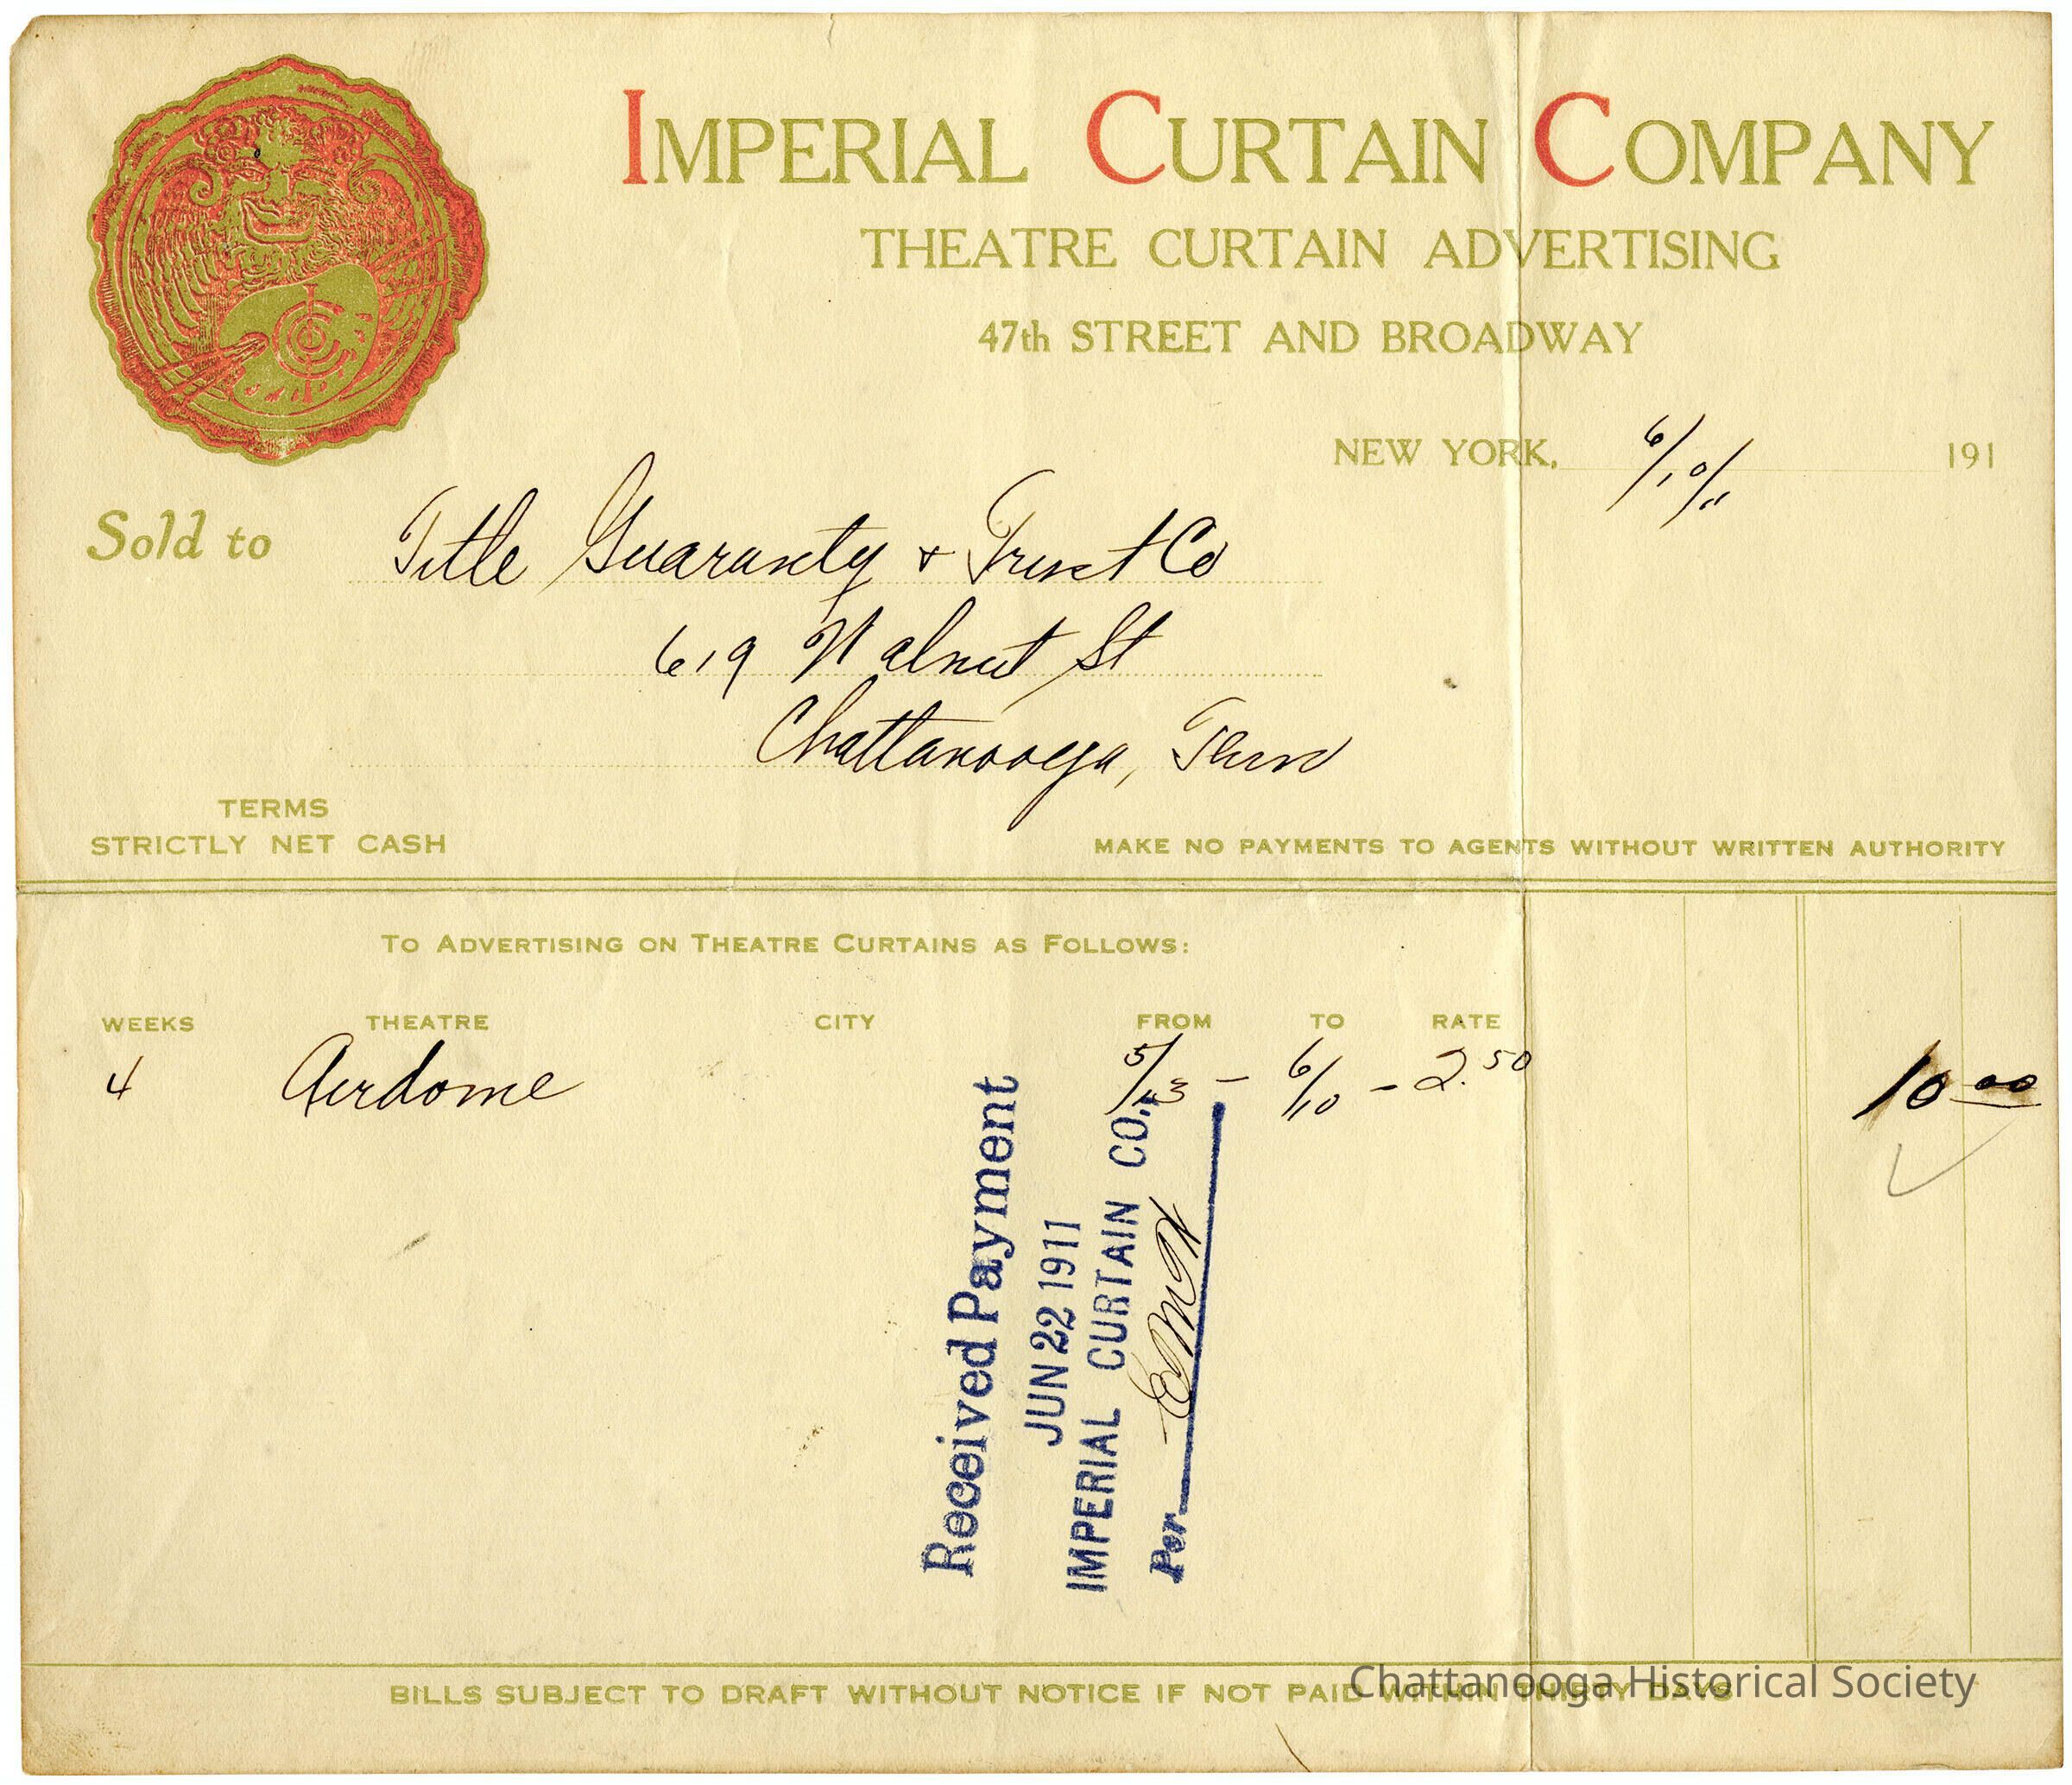 IMPERIAL CURTAIN COMPANY
THEATRE CURTAIN ADVERTISING
47th STREET AND BROADWAY
NEW YORK, 6/10/11 191
Sold to Title Guaranty & Trust Co
619 Walnut St
Chattanooga, Tenn
TERMS
STRICTLY NET CASH
MAKE NO PAYMENTS TO AGENTS WITHOUT WRITTEN AUTHORITY
TO ADVERTISING ON THEATRE CURTAINS AS FOLLOWS:
WEEKS THEATRE CITY FROM TO RATE
4 Airdome 5/13 - 6/10 - 2.50 10 00
Received Payment
JUN 22 1911
IMPERIAL CURTAIN CO.,
Per
BILLS SUBJECT TO DRAFT WITHOUT NOTICE IF NOT PAID WITHIN THIRTY DAYS
Chattanooga Historical Society